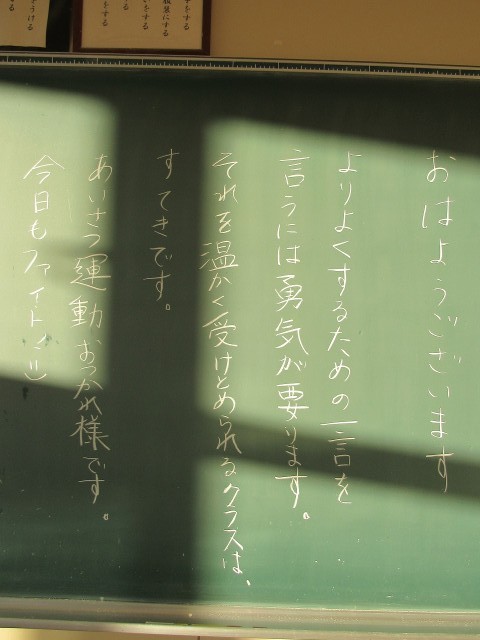 おはようございます
よりよくするための一言を
言うには勇気が要ります。
それを温かく受けとめられるクラスは、
すてきです。
あいさつ運動おつかれ様です。
今日もファイト!!